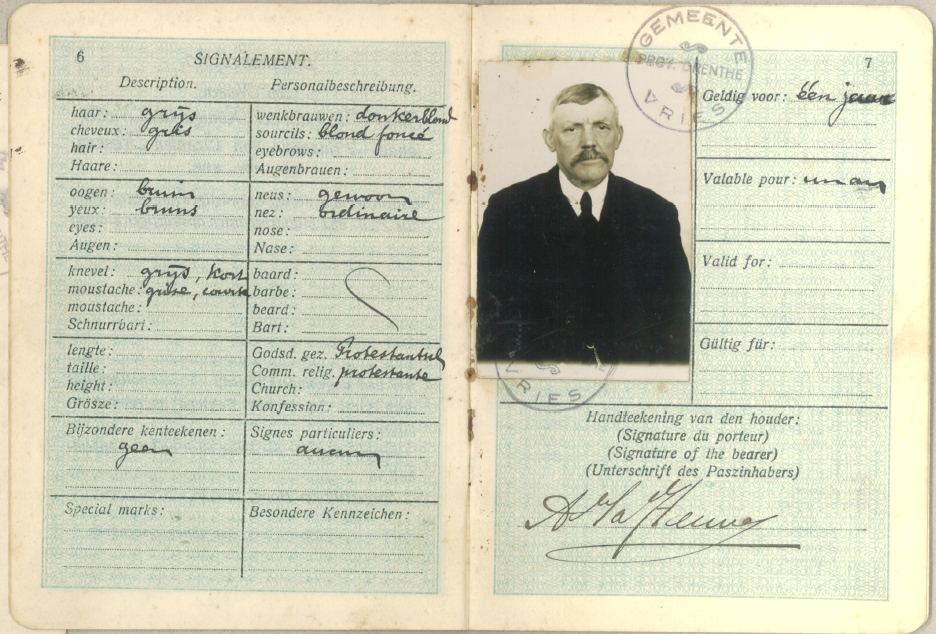 6
SIGNALEMENT.
Description. Personalbeschreibung.
haar: grijs
cheveux: gris
hair:
Haare:
wenkbrauwen: donkerblond
sourcils: blond foncé
eyebrows:
Augenbrauen:
oogen: bruin
yeux: bruns
eyes:
Augen:
neus: gewoon
nez: ordinaire
nose:
Nase:
knevel: grijs, kort
moustache: grise, courte
moustache:
Schnurrbart:
baard:
barbe:
beard:
Bart:
lengte:
taille:
height:
Grösze:
Godsd. gez. Protestantsch
Comm. relig. protestante
Church:
Konfession:
Bijzondere kenteekenen:
geen
Signes particuliers:
aucun
Special marks:
Besondere Kennzeichen:
7
GEMEENTE
PROV. DRENTHE
VRIES
Geldig voor: één jaar
Valable pour: un an
Valid for:
Gültig für:
VRIES
Handteekening van den houder:
(Signature du porteur)
(Signature of the bearer)
(Unterschrift des Paszinhabers)